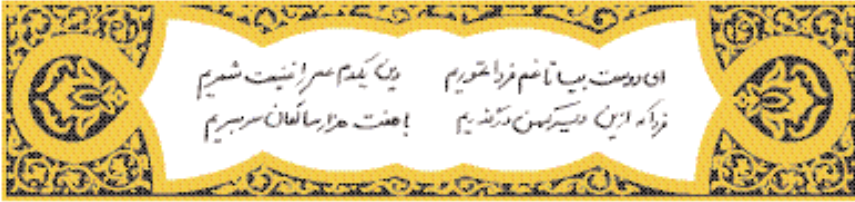 ای دوست بیا تا غم فردا نخوریم وین یکدم عمر را غنیمت شمریم
فردا که ازین دیر کهن درگذریم با هفت هزار سالگان سر بسریم